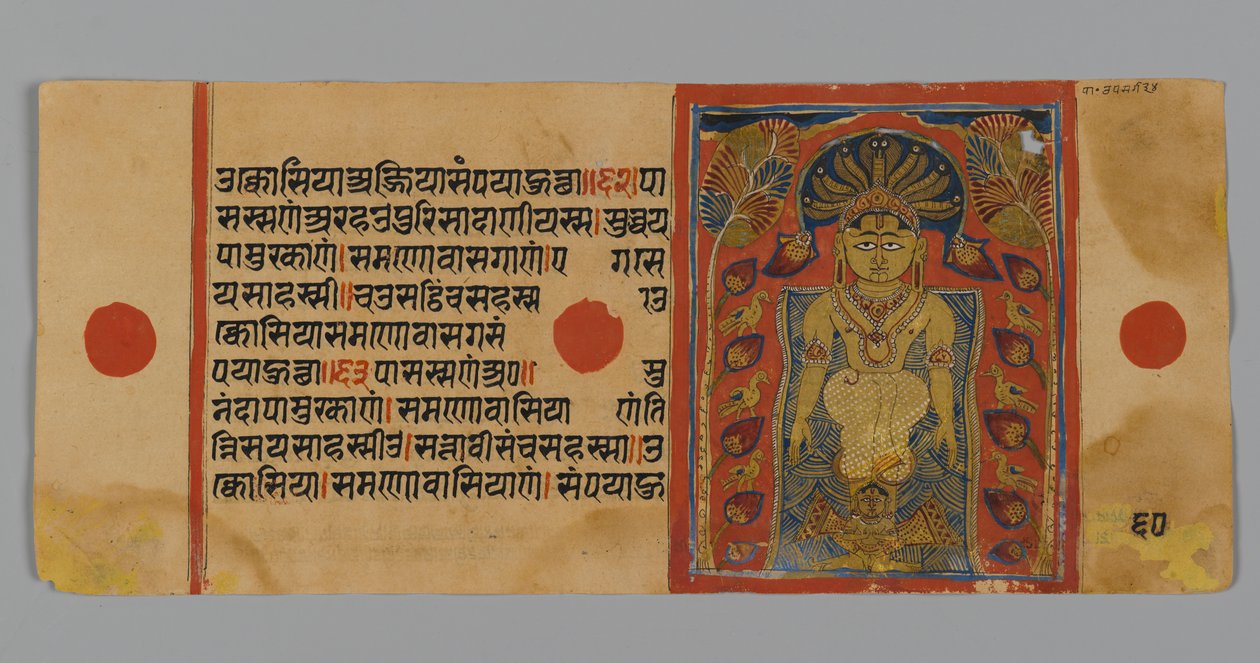 उक्कोसिया अज्जियासंपया हुत्था॥६२॥पा
सस्सणं अरहउ पुरिसादाणीयस्स।सुव्वय
पामुरकाणं।समणोवासगाणं।ए गा स
यसाहस्सी॥चउसट्ठिं च सहस्स उ
क्कोसिया समणोवासगसं
पया हुत्था॥६३ पासस्सणं अ०॥ सु
नंदापामुरकाणं।समणोवासिया णं ति
न्निसयसाहस्सीउ।सत्तावीसं च सहस्सा॥उ
क्कोसिया।समणोवासियाणं।संपया हु
पा॰ उपसर्ग ३४
६०